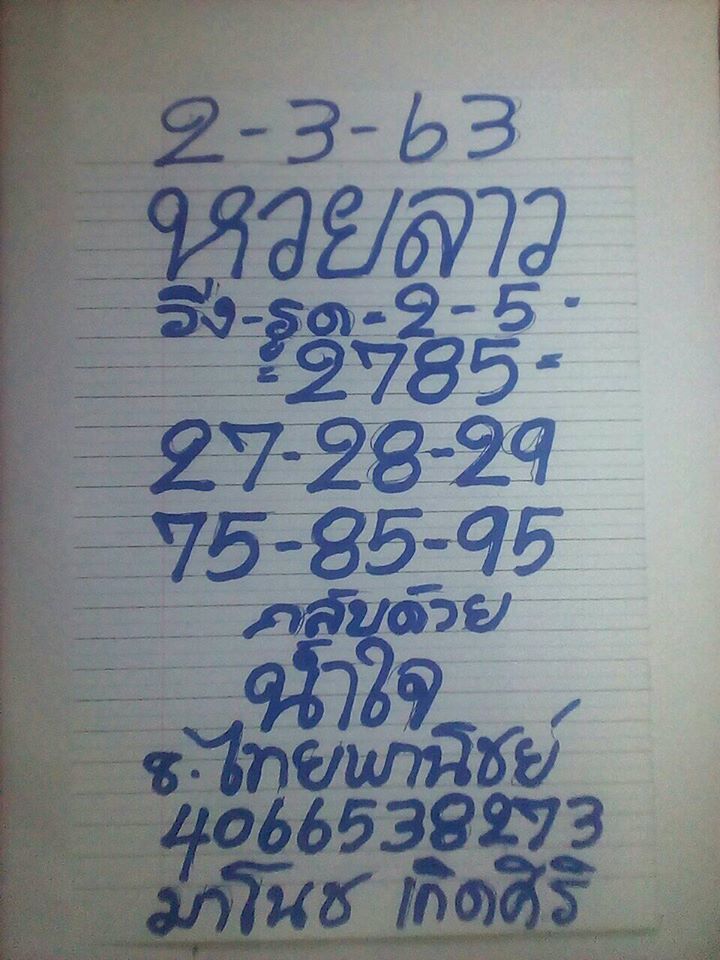 2-3-63
หวยลาว
วิ่ง-รูด-2-5-
=2785=
27-28-29
75-85-95
กลับด้วย
น้ำใจ
ธ.ไทยพานิชย์
4066538273
มาโนช เกิดศิริ